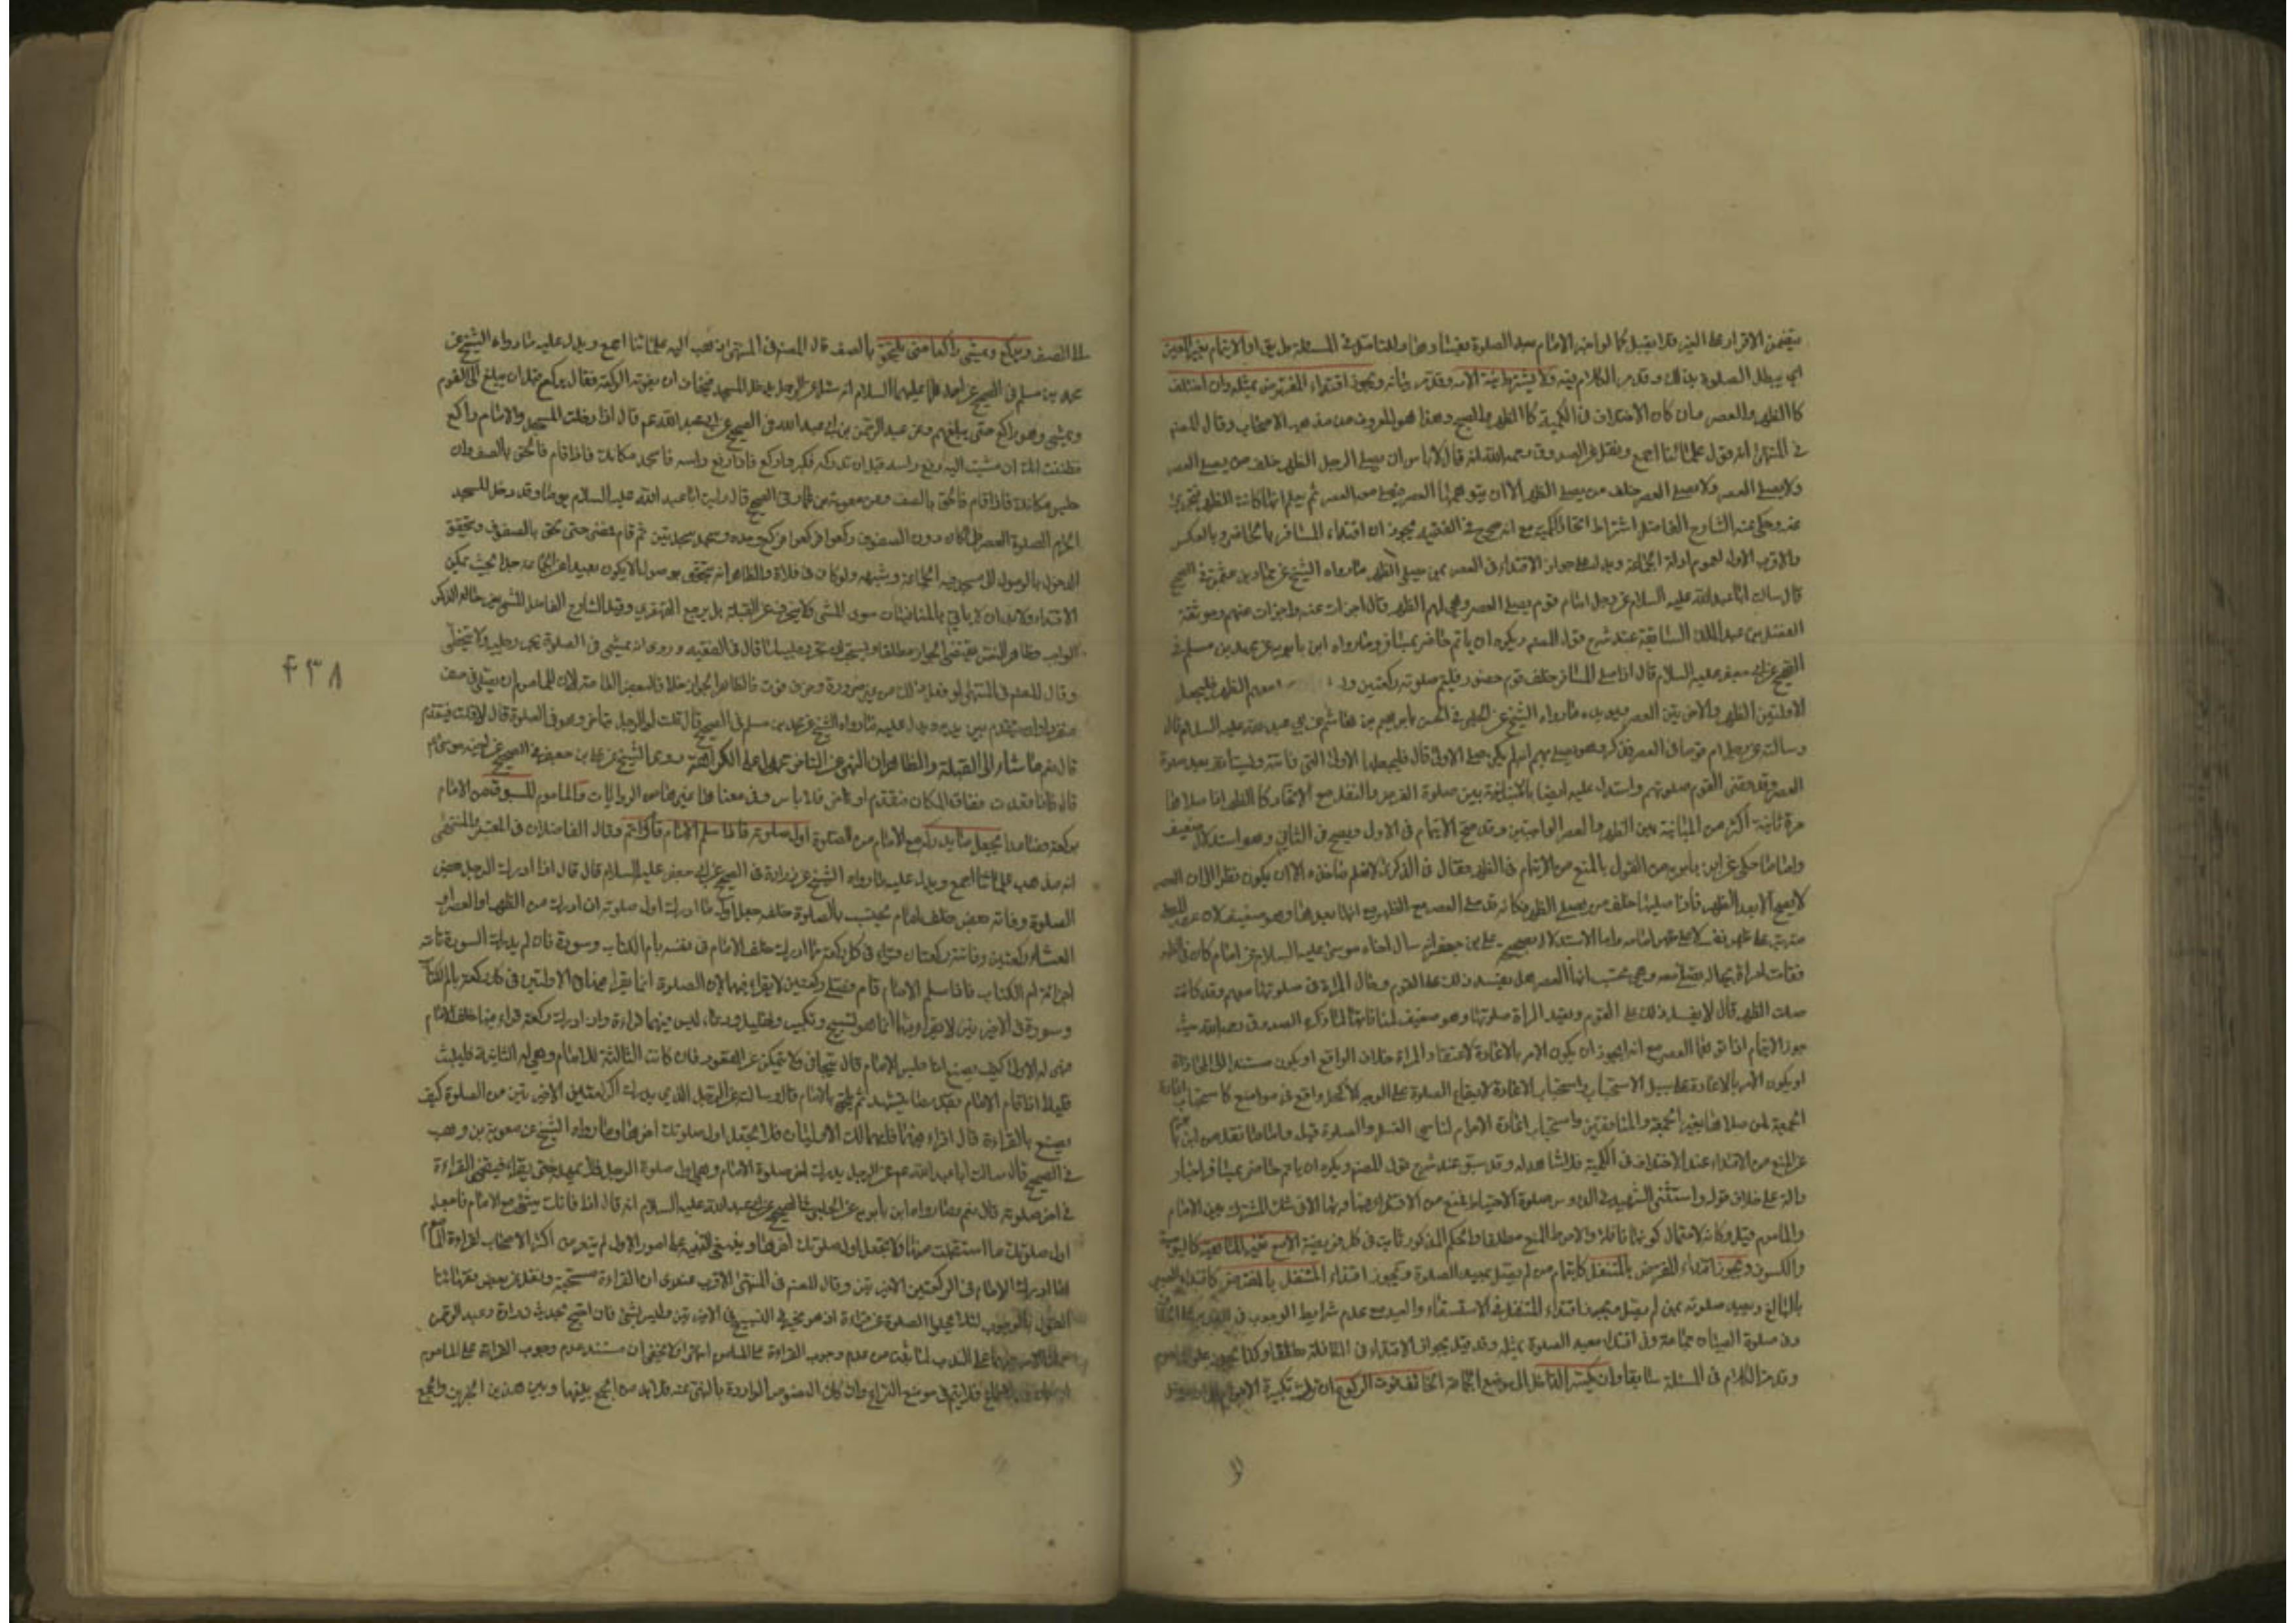 يتضمن الاقرار على الغير فلا يقبل كما لو اخبر الامام بعد الصلوة بفسادها وللتامل في المسئلة طريق او الايتمام بغير المعين
اي يبطل الصلوة بذلك وقد مر الكلام فيه ولا يشترط نية الامامة وقد مر بيانه ويجوز اقتداء المفترض بمثله وان اختلفا
كالظهر والعصر وان كان الاختلاف في الكمية كالظهر والصبح وهذا هو المعروف من مذهب الاصحاب وقال المصنف
في المنتهى انه قول علمائنا اجمع ونقل عن الصدوق رحمه الله انه قال لا باس ان يصلي الرجل الظهر خلف من يصلي العصر
ولا يصلي العصر خلف من يصلي الظهر الا ان يتوهمها العصر فيصلي معه العصر ثم يعلم انها كانت الظهر فتجزي
عنه وحكى عنه الشارح الفاضل اشتراط اتحاد الكمية مع انه صرح في الفقيه بجواز اقتداء المسافر بالحاضر وبالعكس
والاقرب الاول لعموم ادلة الجماعة ويدل على جواز الاقتداء في العصر بمن يصلي الظهر ما رواه الشيخ عن حماد بن عثمان في الصحيح
قال سالت ابا عبد الله عليه السلام عن رجل امام قوم يصلي العصر وهي لهم الظهر قال اجزات عنه واجزات عنهم وموثقة
الفضل بن عبد الملك السابقة عند شرح قول المصنف ويكره ان ياتم حاضر بمسافر وما رواه ابن بابويه عن محمد بن مسلم في
الصحيح عن ابي جعفر عليه السلام قال اذا صلى المسافر خلف قوم حضور فليتم صلوته ركعتين و معهم الظهر فليجعل
الاولتين الظهر والاخيرتين العصر ويؤيده ما رواه الشيخ عن الحلبي في الحسن بابراهيم بن هاشم عن ابي عبد الله عليه السلام قال
وسالته عن رجل ام قوما في العصر فذكر وهو يصلي بهم انه لم يكن صلى الاولى قال فليجعلها الاولى التي فاتته وليستانف بعد صلوة
العصر وقد قضى القوم صلوتهم واستدل عليه ايضا بالمباينة بين صلوة الفرض والنفل مع الاتحاد كالظهر اذا صلاها
مرة ثانية اكثر من المباينة بين الظهر والعصر الواجبتين وقد صح الايتمام في الاول ويصح في الثاني وهو استدلال ضعيف
واما ما حكي عن ابن بابويه من القول بالمنع من الايتمام في الظهر فقال في الذكرى لا نعلم ماخذه الا ان يكون نظرا الى ان العصر
لا يصح الا بعد الظهر فاذا صليها خلف من يصلي الظهر فكانه قد صلى العصر مع الظهر مع انها بعدها وهو ضعيف لان عصر المصلي
مترتبة على ظهر نفسه لا على ظهر امامه واما الاستدلال بصحيح علي بن جعفر انه سال اخاه موسى عليه السلام عن امام كان في الظهر
فقامت امراة بحياله تصلي معه وهي تحسب انها العصر هل يفسد ذلك على القوم وما حال المراة في صلوتها معهم وقد كانت
صلت الظهر قال لا يفسد ذلك على القوم وتعيد المراة صلوتها وهو ضعيف لمنافاتها لما ذكره الصدوق رحمه الله حيث
جوز الايتمام اذا توهمها العصر مع انه يجوز ان يكون الامر بالاعادة لاعتقاد المراة خلاف الواقع او يكون مستندا الى المحاذاة
او يكون الامر بالاعادة على سبيل الاستحباب واستحباب الاعادة لايقاع الصلوة على الوجه الاكمل واقع في مواضع كاستحباب اعادة
الجمعة لمن صلاها بغير الجمعة والمنافقين واستحباب اعادة الاحرام لناسي الغسل والصلوة قبله واما ما نقل من
عن المنع من الاقتداء عند الاختلاف في الكمية فلا شاهد له وقد سبق عند شرح قول المصنف ويكره ان ياتم حاضر بمسافر اخبار
دالة على خلاف قوله واستثنى الشهيد في الدروس صلوة الاحتياط فمنع من الاقتداء فيها وبها الا في شك المشترك بين الامام
والماموم وكانه لاحتمال كونها نافلة والاحوط المنع مطلقا والحكم المذكور ثابت في كل فريضة الا مع تغير الهيئة كاليومية
والكسوف ويجوز اقتداء المفترض بالمتنفل كايتمام من لم يصل بمعيد الصلوة ويجوز اقتداء المتنفل بالمفترض كاقتداء الصبي
بالبالغ ومعيد صلوته بمن لم يصل ويجوز اقتداء المتنفل في الاستسقاء والعيد مع عدم شرايط الوجوب في
وفي صلوة الصبيان جماعة وفي اقتداء معيد الصلوة بمثله وقد قيل بجواز الاقتداء في النافلة مطلقا
وقد مر الكلام في المسئلة سابقا وان يكبر الداخل الى موضع الجماعة الخائف فوت الركوع ان ترك تكبيرة الاحرام
الى الصف ويركع ويمشي راكعا حتى يلتحق بالصف قال المصنف في المنتهى انه ذهب اليه علمائنا اجمع ويدل عليه ما رواه الشيخ عن
محمد بن مسلم في الصحيح عن احدهما عليهما السلام انه سئل عن الرجل يدخل المسجد فيخاف ان تفوته الركعة فقال يركع قبل ان يبلغ الى القوم
ويمشي وهو راكع حتى يبلغهم وعن عبد الرحمن بن ابي عبد الله في الصحيح عن ابي عبد الله عم قال اذا دخلت المسجد والامام راكع
فظننت انك ان مشيت اليه رفع راسه قبل ان تدركه فكبر واركع فاذا رفع راسه فاسجد مكانك فاذا قام فالحق بالصف وان
جلس مكانك فاذا قام فالحق بالصف وعن معوية بن عمار في الصحيح قال رايت ابا عبد الله عليه السلام يوما وقد دخل المسجد
الحرام لصلوة العصر فلما كان دون الصفوف ركعوا فركع وحده وسجد سجدتين ثم قام فمضى حتى لحق بالصفوف ويتحقق
الدخول بالوصول الى مسجد فيه الجماعة وشبهه ولو كان في فلاة والظاهر انه يتحقق بوصولها لا يكون بعيدا عن الجماعة جدا بحيث يمكن
الاقتداء ولابد ان لا ياتي بالمنافيات سوى المشي فلا ينحرف عن القبلة بل يرجع القهقرى وقيد الشارح الفاضل المشي بغير حالة الذكر
الواجب وظاهر النص يقتضي الجواز مطلقا ويستحب ان يجر رجليه لما قال في الفقيه وروي انه يمشي في الصلوة يجر رجليه ولا يتخطى
وقال المصنف في المنتهى لو فعل ذلك من غير ضرورة وخوف فوت فالظاهر الجواز خلافا لبعض العامة لان للماموم ان يصلي في صف
منفردا وان يتقدم بين يديه ويدل عليه ما رواه الشيخ عن محمد بن مسلم في الصحيح قال قلت له الرجل يتاخر وهو في الصلوة قال لا قلت فيتقدم
قال نعم ما شاء الى القبلة والظاهر ان النهي عن التاخر محمول على الكراهة وروى الشيخ عن علي بن جعفر في الصحيح عن اخيه موسى عم
قال فاذا قعدت فضاق المكان فتقدم او تاخر فلا باس وفي معناها غيرها من الروايات والماموم المسبوق من الامام
بركعة فصاعدا يجعل ما يدركه مع الامام من الصلوة اول صلوته فاذا سلم الامام قام فاتم وقال الفاضلان في المعتبر والمنتهى
انه مذهب علمائنا اجمع ويدل عليه ما رواه الشيخ عن زرارة في الصحيح عن ابي جعفر عليه السلام قال قال اذا ادرك الرجل بعض
الصلوة وفاته بعض خلف امام يحتسب بالصلوة خلفه جعل اول ما ادرك اول صلوته ان ادرك من الظهر او العصر او
العشاء ركعتين وفاتته ركعتان قراء في كل ركعة مما ادرك خلف الامام في نفسه بام الكتاب وسورة فان لم يدرك السورة تامة
اجزائه ام الكتاب فاذا سلم الامام قام فصلى ركعتين لا يقراء فيهما لان الصلوة انما يقراء فيها في الاولتين في كل ركعة بام الكتاب
وسورة وفي الاخيرتين لا يقراء فيهما انما هو تسبيح وتكبير وتهليل ودعاء ليس فيهما قراءة وان ادرك ركعة قراء فيها خلف الامام
متى له الاولى كيف يصنع اذا جلس الامام قال يتجافى ولا يتمكن من القعود فان كانت الثالثة للامام وهي له الثانية فليلبث
قليلا اذا قام الامام بقدر ما يتشهد ثم يلحق بالامام قال وسالته عن الرجل الذي يدرك الركعتين الاخيرتين من الصلوة كيف
يصنع بالقراءة قال اقراء فيهما فانهما لك الاوليان فلا تجعل اول صلوتك اخرها وما رواه الشيخ عن معوية بن وهب
في الصحيح قال سالت ابا عبد الله عم عن الرجل يدرك اخر صلوة الامام وهي اول صلوة الرجل فلا يمهله حتى يقراء فيقضي القراءة
في اخر صلوته قال نعم وما رواه ابن بابويه عن الحلبي في الصحيح عن ابي عبد الله عليه السلام انه قال اذا فاتك شيء مع الامام فاجعل
اول صلوتك ما استقبلت منها ولا تجعل اول صلوتك اخرها وينبغي التنبيه على امور الاول لم يتعرض اكثر الاصحاب لقراءة الماموم
اذا ادرك الامام في الركعتين الاخيرتين وقال المصنف في المنتهى الاقرب عندي ان القراءة مستحبة ونقل عن بعض فقهائنا
القول بالوجوب لئلا تخلو الصلوة عن قراءة اذ هو مخير في التسبيح في الاخيرتين وليس بشيء فان احتج بحديث زرارة وعبد الرحمن
حملنا الامر فيهما على الندب لما ثبت من عدم وجوب القراءة على الماموم انتهى ولا يخفى ان مستند عدم وجوب القراءة على الماموم
فلا يتم في موضع النزاع وان كان النصوص الواردة بالنهي عنه فلابد من الجمع بينها وبين هذين الخبرين والجمع
۴۳۸